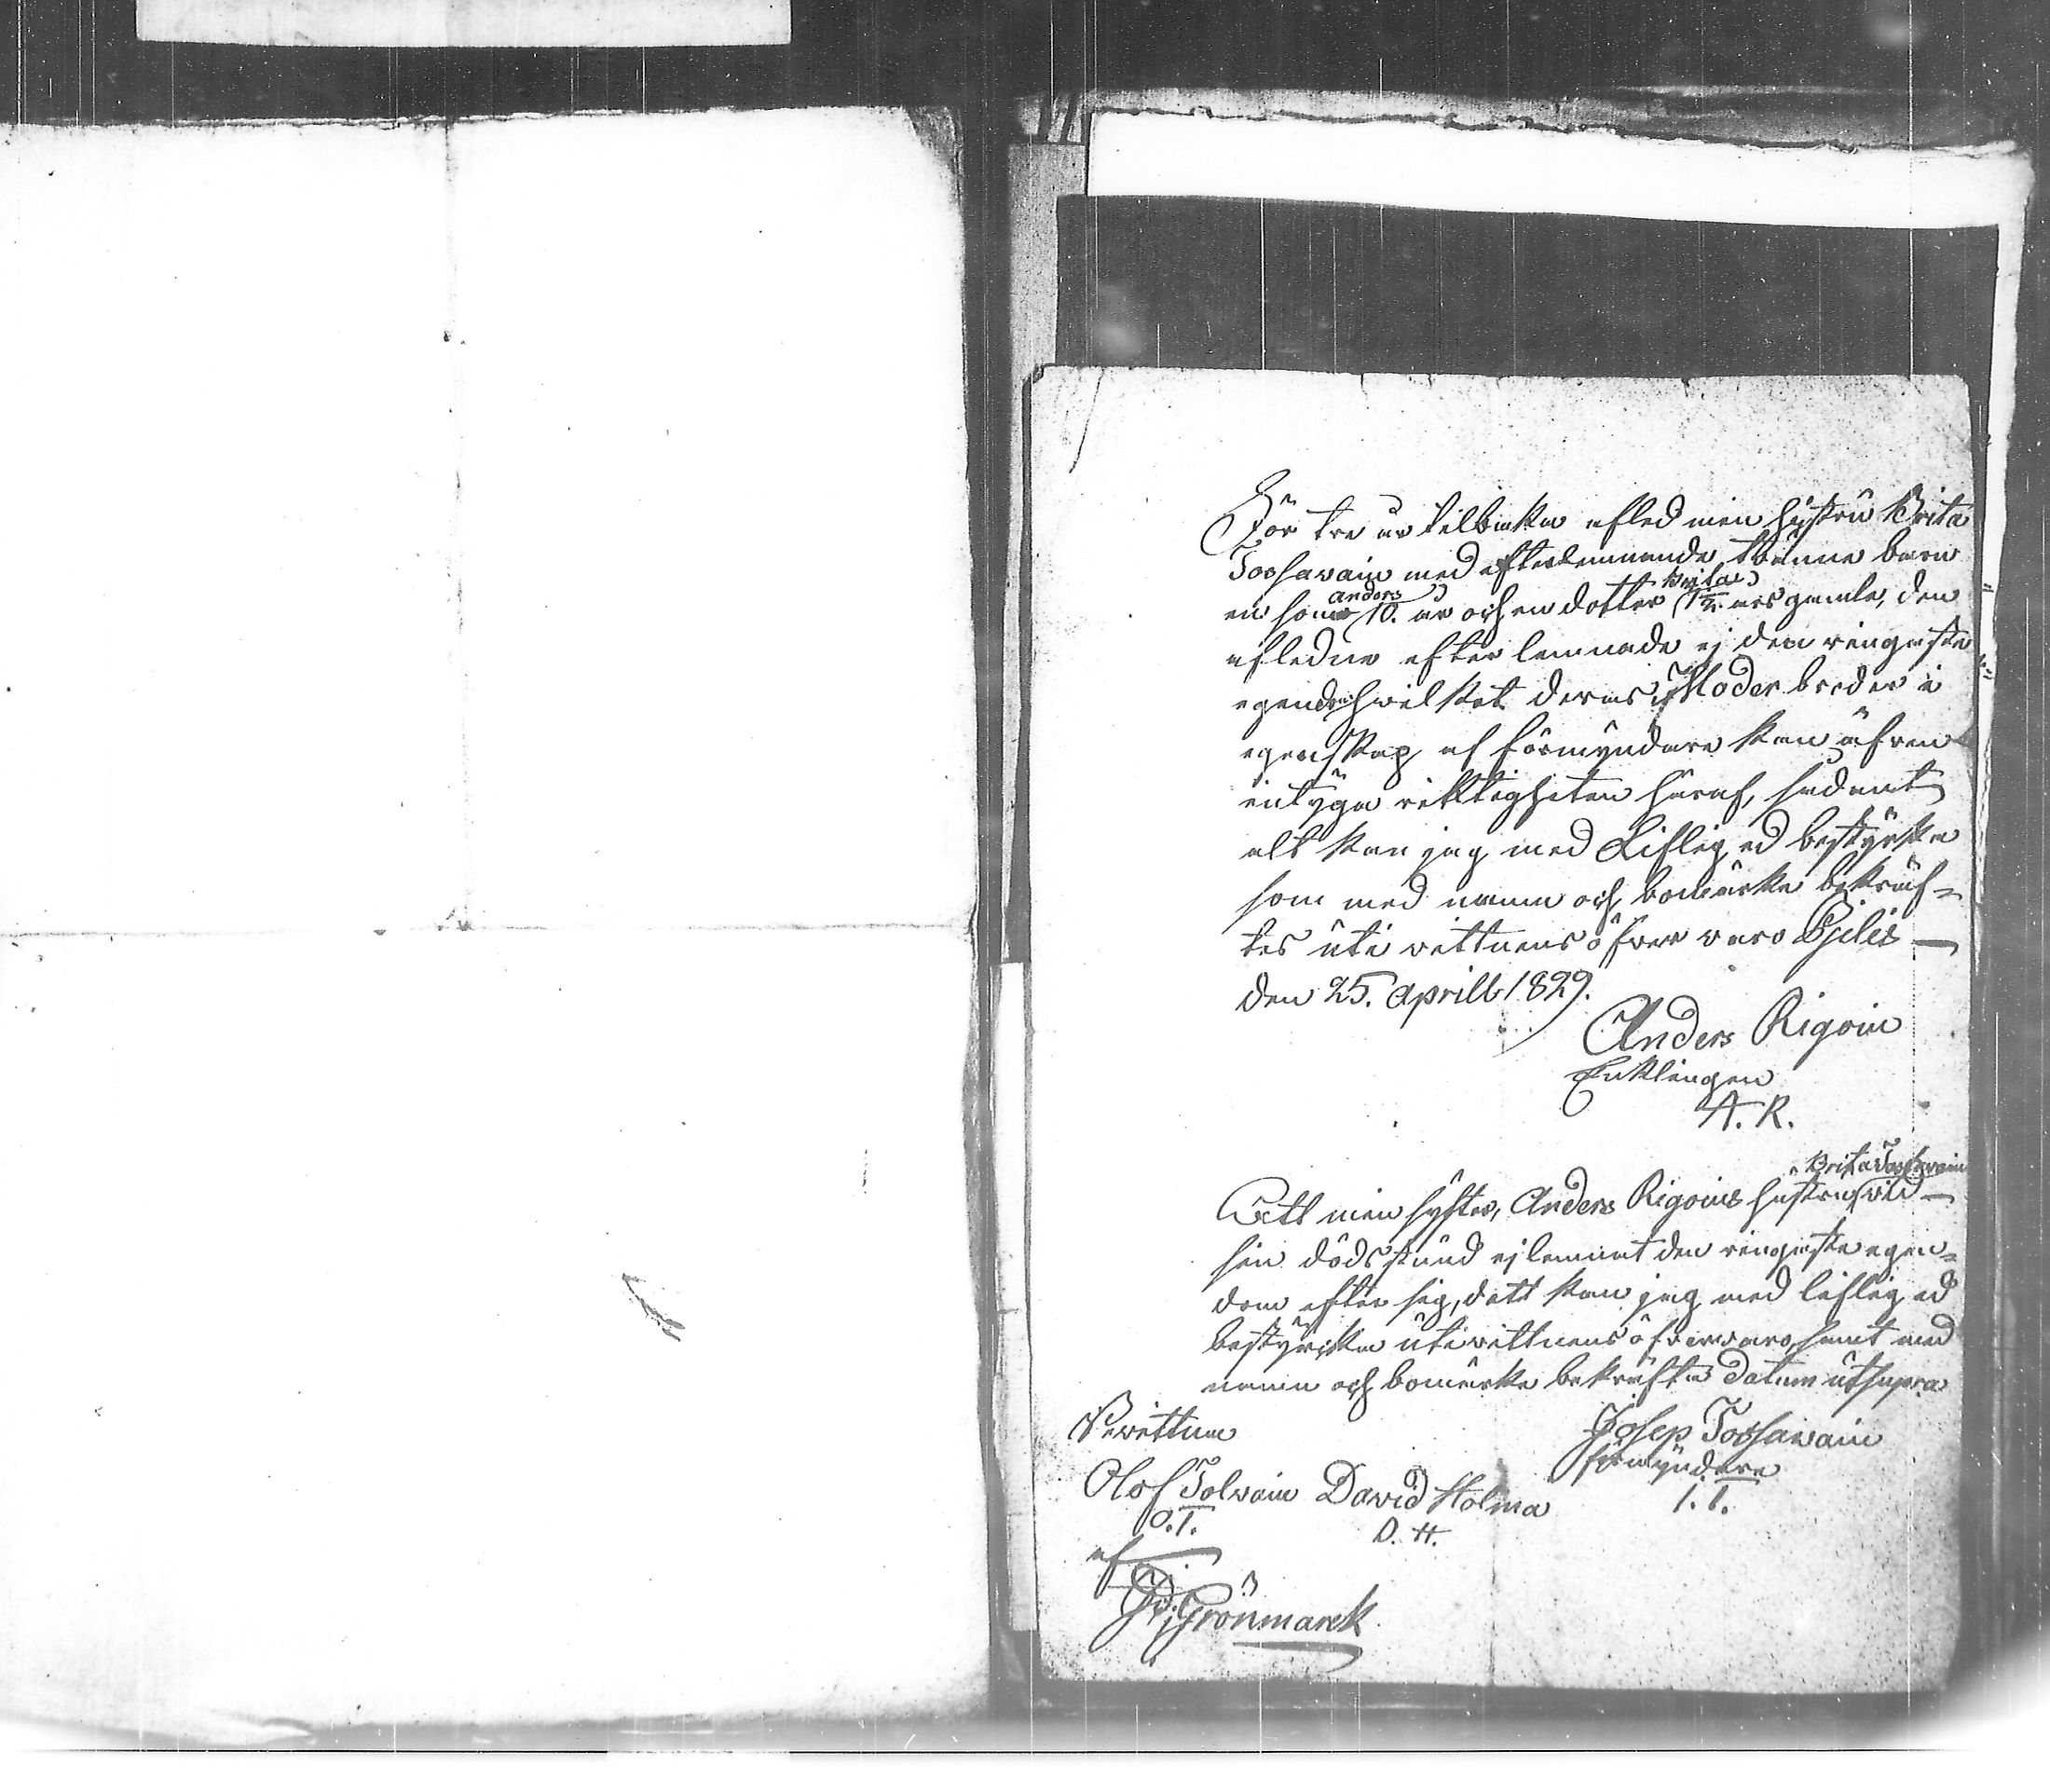 För tre år tilbaka afled min hustru Brita
Tossavain med efterlemnande tvänne barn
en son Anders 10. år och en dotter Brita 1 1/2. års gamle, den
afledne efter lemnade ej den ringaste
egendom hvilket deras Moder broder i
egenskap af förmyndare kan äfven
intyga riktigheten häraf, sådant
alt kan jag med Liflig ed bestyrka
som med namn och bomärke bekräf=
tes uti vittnens öfver varo
den 25. Aprill 1829.
Anders Rigoin
Enklingen
A. R.
Brita Tossavain
Att min syster, Anders Rigoins hustru vid
sin dödsstund ej lemnat den ringaste egen=
dom efter sig, dett kan jag med liflig ed
bestyrcka uti vittnens öfvervaro, samt med
namn och bomärke bekräfta Datum utsupra
Bevittna
Josep Tossavain
förmyndare
I. T.
Olof Tolvain David Holma
O. T. D. H.
af
Grönmarck